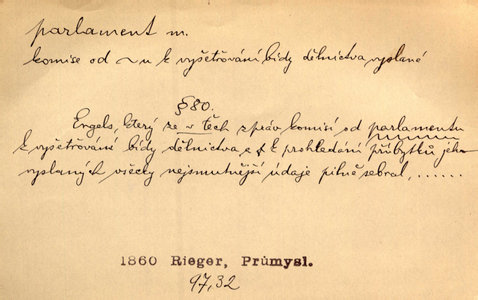 parlament m.
komise od ~u k vyšetřování bídy dělnictva vyslané
§80.
Engels, který ze všech zpráv komisí od parlamentu
k vyšetřování bídy dělnictva a k prohledání příbytků jeho
vyslaných všecky nejsmutnější údaje pilně sebral, ......
1860 Rieger, Průmysl.
97,32